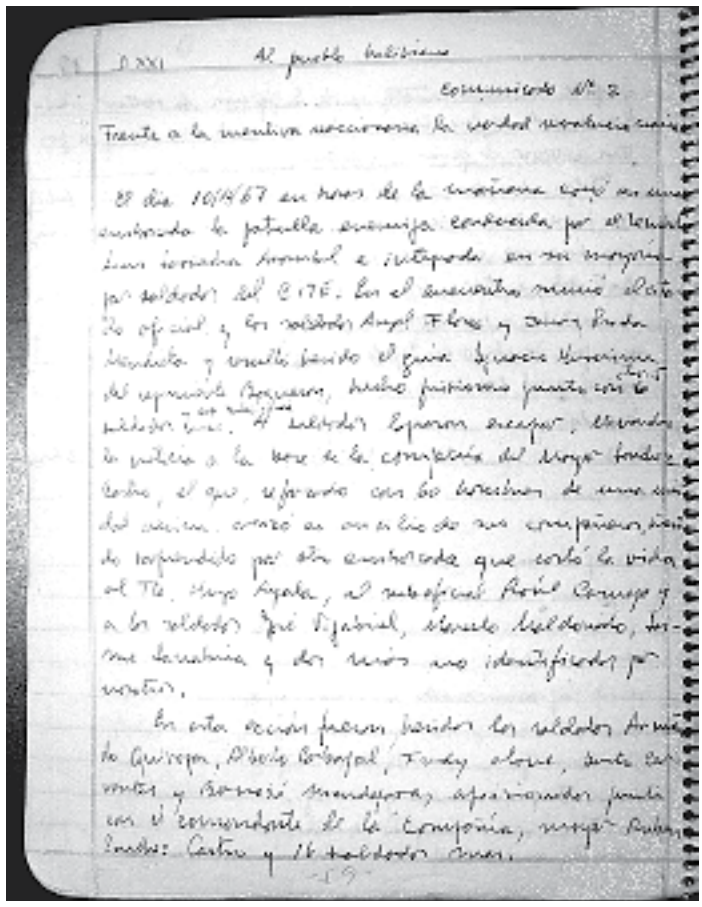 D XXI Al pueblo boliviano
Comunicado Nº 2
Frente a la mentira reaccionaria la verdad revolucionaria
El día 10/4/67 en horas de la mañana cayó en una
emboscada la patrulla enemiga conducida por el teniente
e integrada en su mayoría
por soldados del CITE. En el encuentro murió el cita
do oficial y los soldados Angel Flores y
y resultó herido el guía Ignacio
del regimiento Boqueron, hecho prisionero junto con
soldados 4 soldados lograron escapar, llevando
la noticia a la base de la compañía del mayor Sanchez
Castro, el que, reforzado con 60 hombres de una
avanzó en auxilio de sus compañeros, sien
do sorprendido por otra emboscada que costó la vida
al Tte. Hugo Ayala, al suboficial Raúl Cornejo y
a los soldados José Vijabriel, Marcelo Maldonado,
me Sanabria y dos más no identificados por
nosotros.
En esta acción fueron heridos los soldados Arman
do Quiroga, Alberto Carbajal, Fredy
y aprisionados junto
con el comandante de la Compañía, mayor Ruben
Sanchez Castro y 16 soldados mas.
-19-